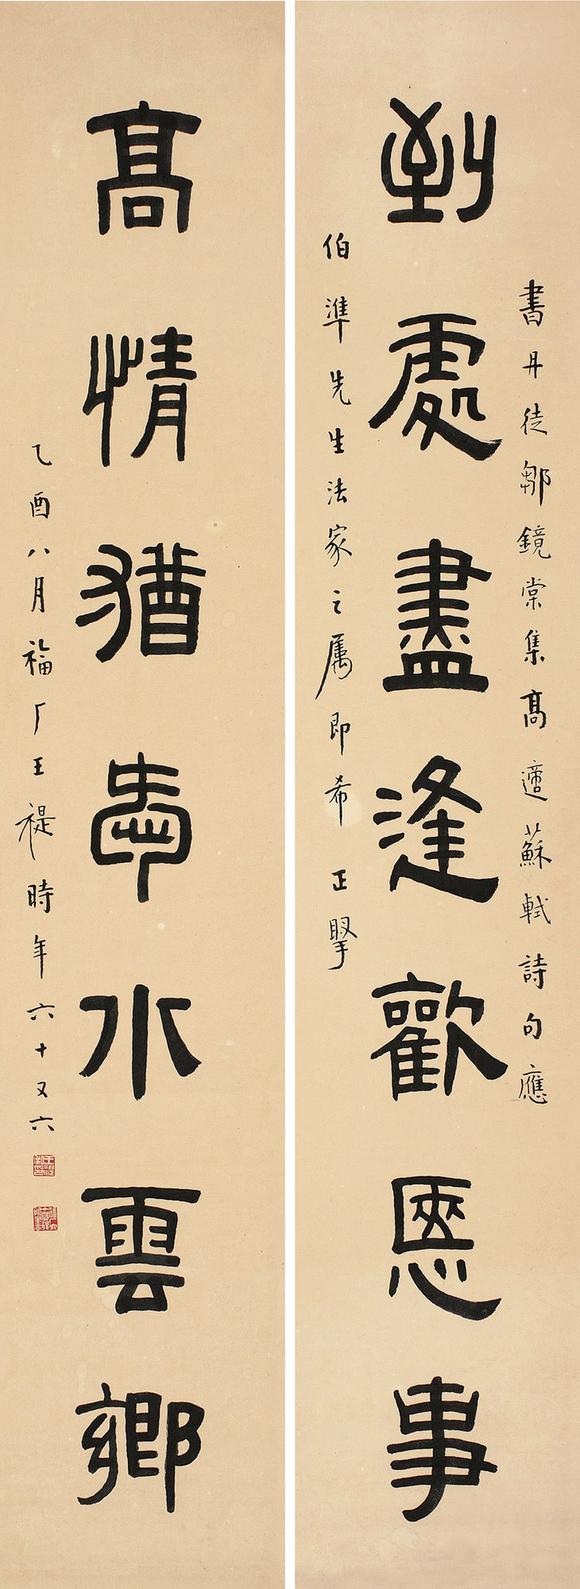 到處盡逢歡愜事
書丹徒鄒鏡棠集高適蘇軾詩句應
伯準先生法家之属即希正掔
高情猶愛水雲鄉
乙酉八月福厂王禔時年六十又六